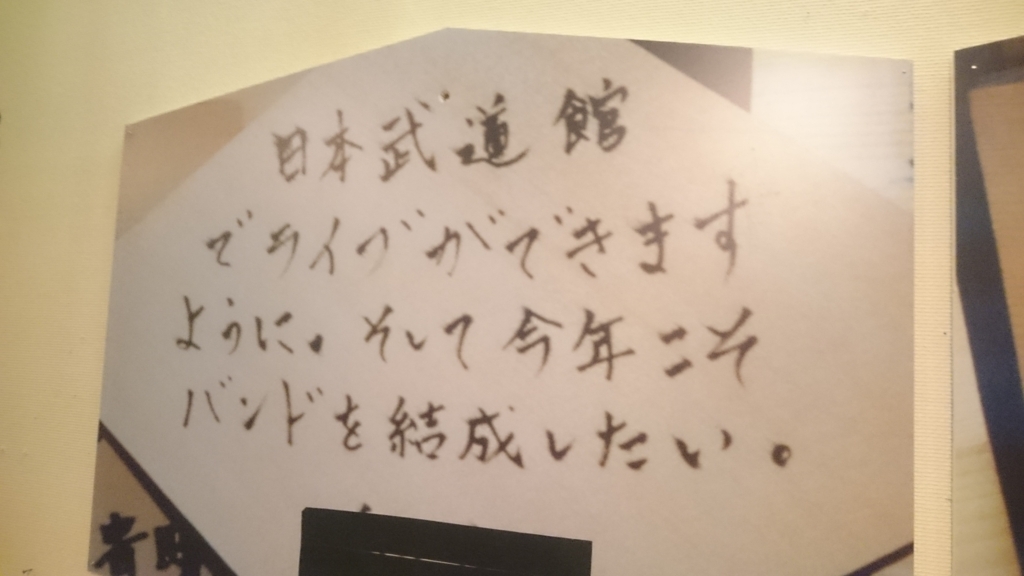 日本武道館
でライブができます
ように。そして今年こそ
バンドを結成したい。